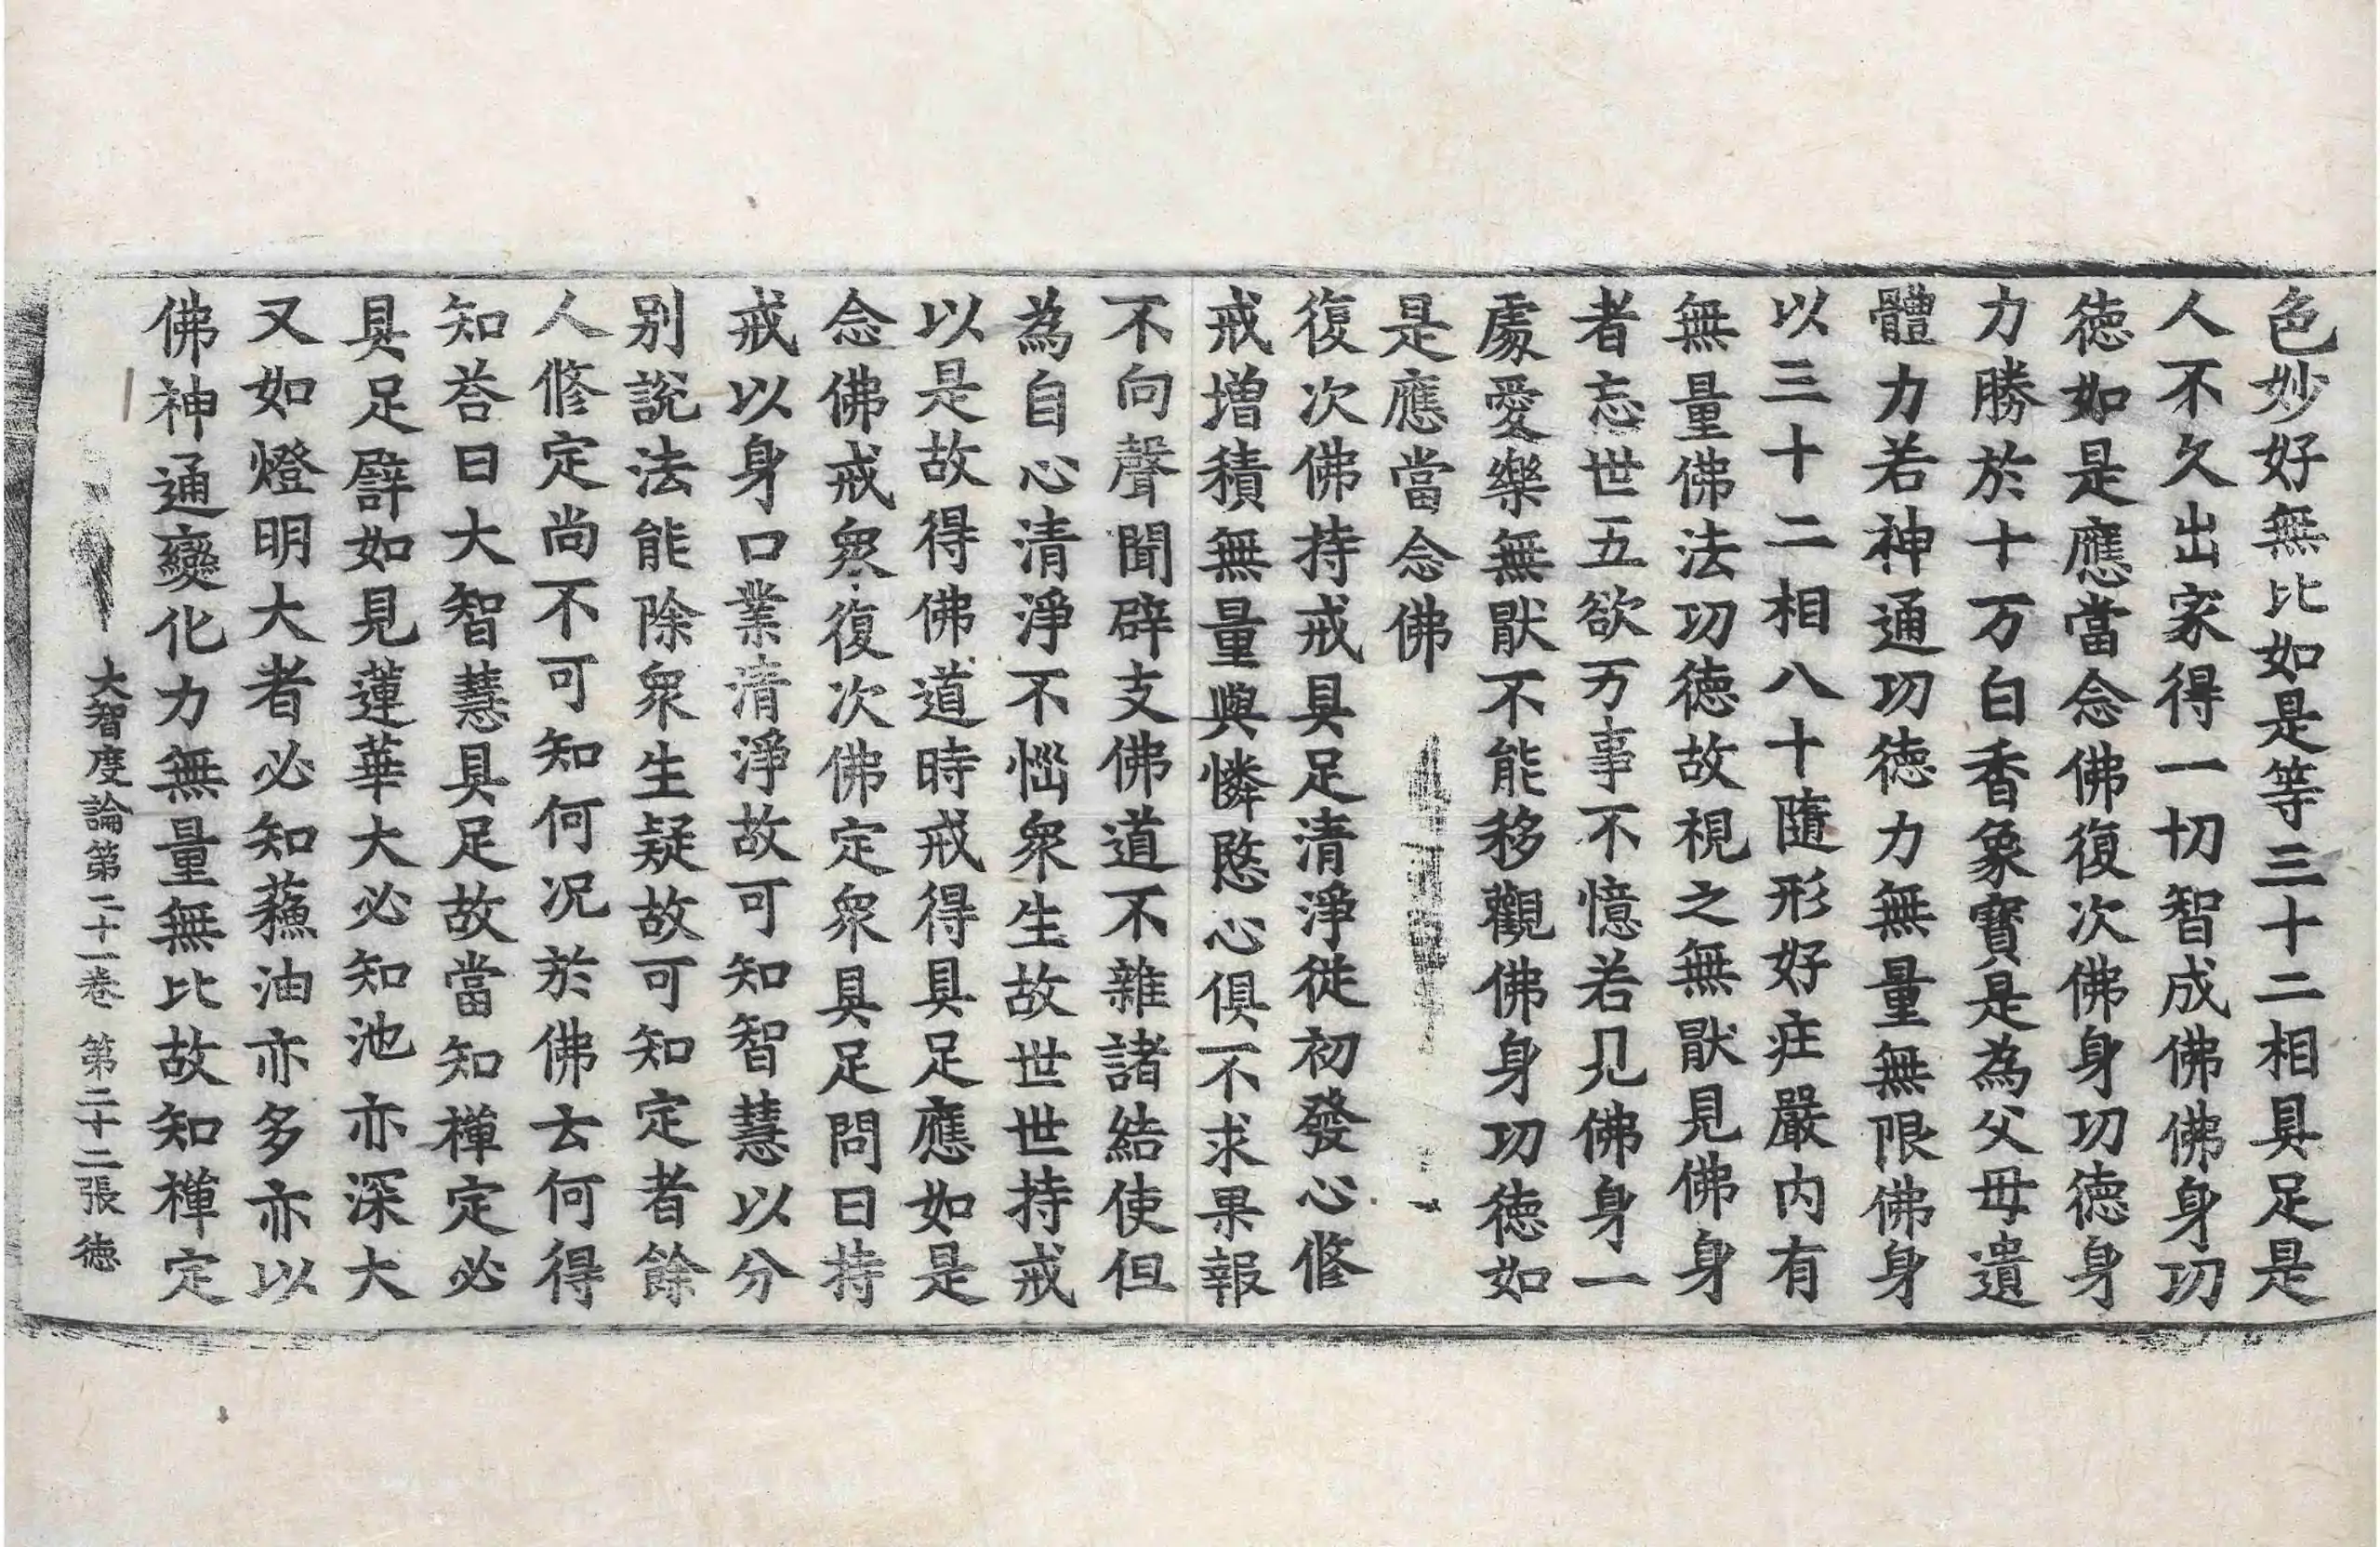 色妙好無比如是等三十二相具足是
人不久出家得一切智成佛佛身功
徳如是應當念佛復次佛身功徳身
力勝於十万白香象寳是為父母遺
體力若神通功徳力無量無限佛身
以三十二相八十隨形好庄嚴内有
無量佛法功徳故視之無猒見佛身
者忘世五欲万事不憶若見佛身一
處愛樂無猒不能移觀佛身功徳如
是應當念佛
復次佛持戒具足清淨従初發心修
戒增積無量與憐愍心俱不求果報
不向聲聞辟支佛道不雜諸結使但
為自心清淨不惱衆生故世世持戒
以是故得佛道時戒得具足應如是
念佛戒衆復次佛定衆具足問曰持
戒以身口業清淨故可知智慧以分
别說法能除衆生疑故可知定者餘
人修定尚不可知何况於佛云何得
知荅曰大智慧具足故當知禪定必
具足譬如見蓮華大必知池亦深大
又如燈明大者必知蘓油亦多亦以
佛神通變化力無量無比故知禪定
大智度論第二十一卷 第二十二張 徳